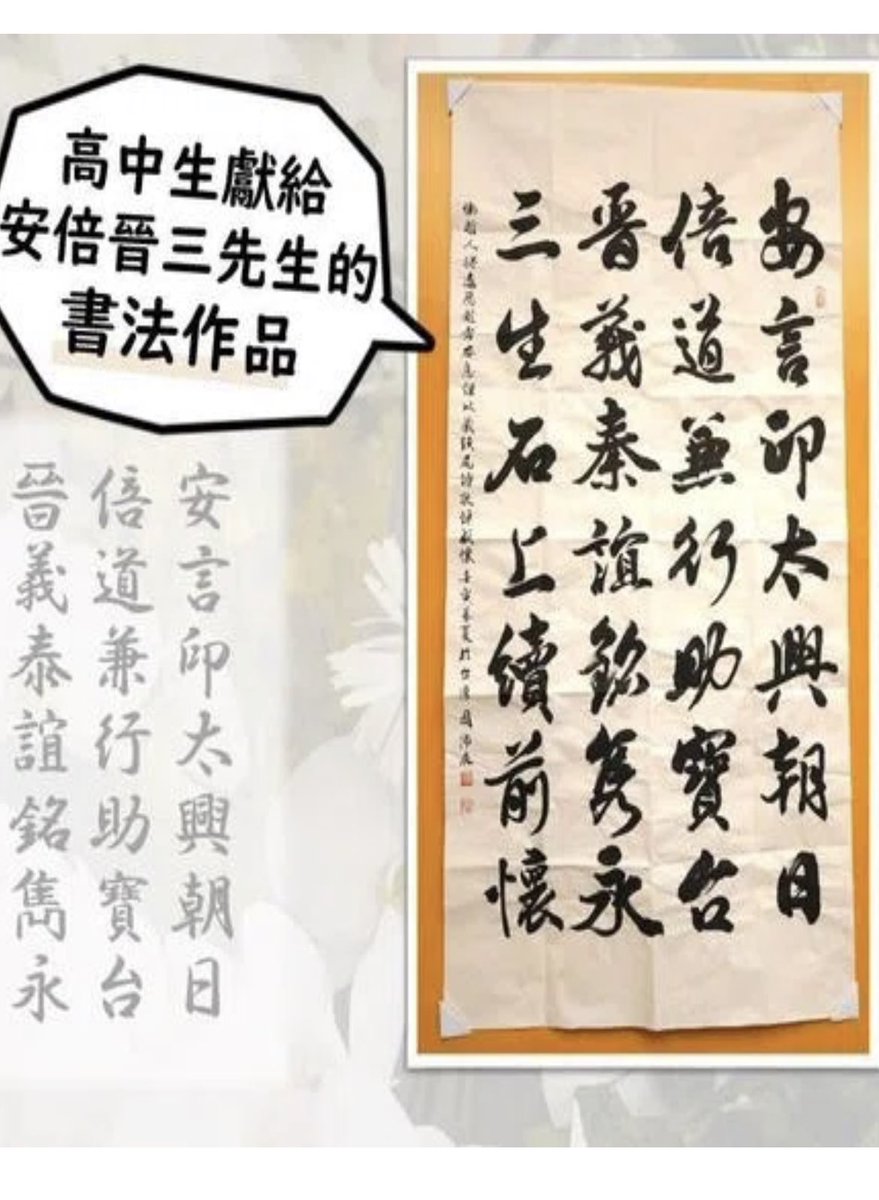 高中生獻給
安倍晉三先生的
書法作品
安言卬太興朝日
倍道兼行助寶台
晉義泰誼銘雋永
安言卬太興朝日
倍道兼行助寶台
晉義秦誼銘雋永
三生石上續前懷